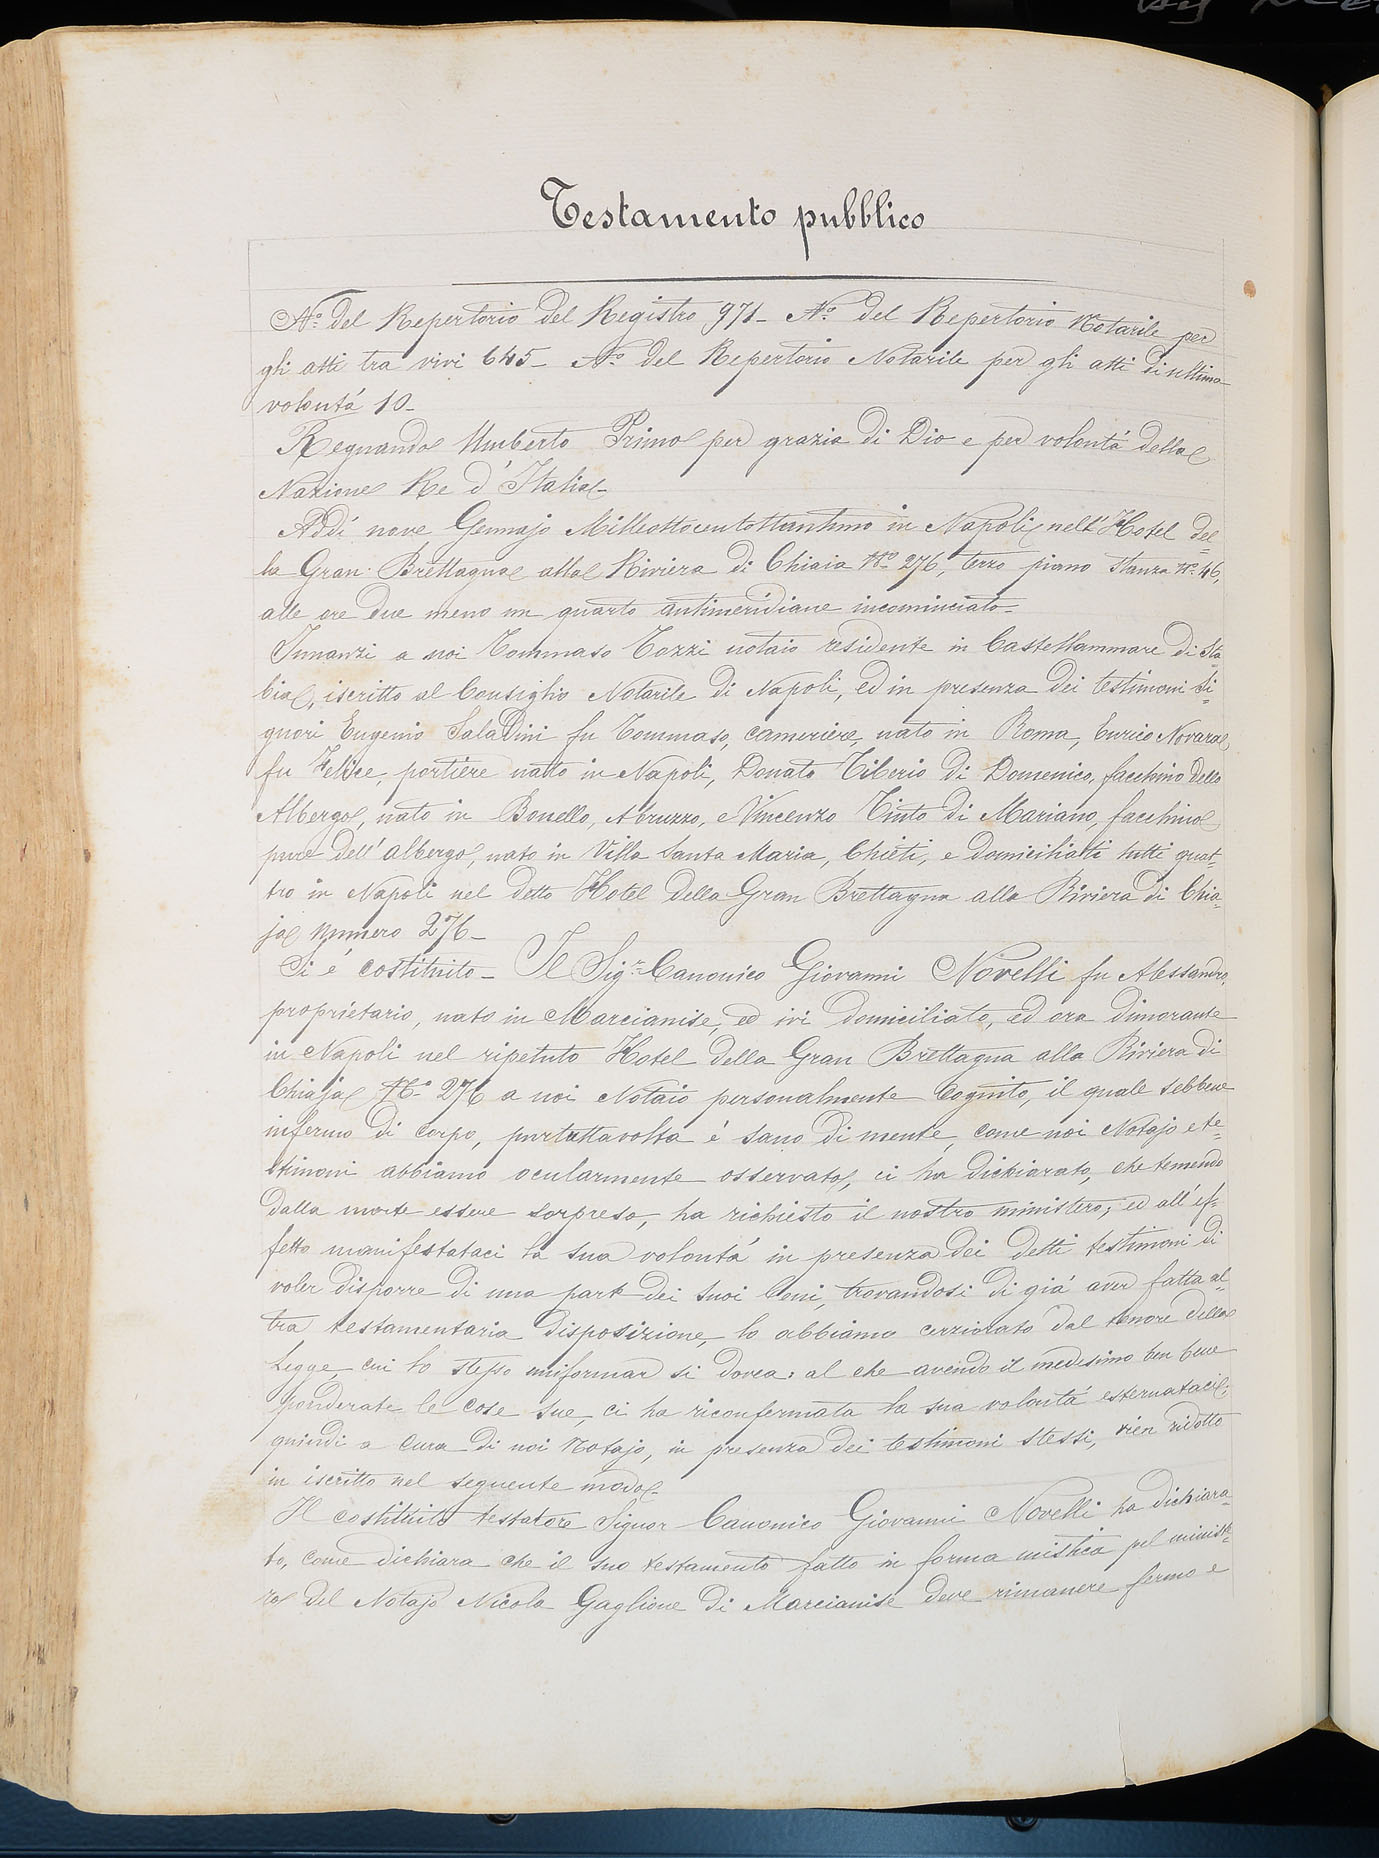 Testamento pubblico
No. del Repertorio del Registro 971_ No. del Repertorio Notarile per
gli atti tra vivi 645_ No. del Repertorio Notarile per gli atti di ultima
volontá 10_
Regnando Umberto Primo per grazia di Dio e per volontá della
Nazione Re d'Italia_
Addí nove Gennajo Milleottocentottantuno in Napoli nell'Hotel del=
la Gran Brettagna alla Riviera di Chiaia No. 276, terzo piano Stanza No. 46,
alle ore due meno un quarto antimeridiane incominciato_
Innanzi a noi Tommaso Tozzi notaio residente in Castellammare di Sta=
bia, iscritto al Consiglio Notarile di Napoli, ed in presenza dei testimoni Si=
gnori Eugenio Saladini fu Tommaso, cameriere, nato in Roma, Enrico Novara
fu Felice, portiere nato in Napoli, Donato Tiberio di Domenico, facchino dello
Albergo, nato in Bonello, Abruzzo, e Vincenzo Tinto di Mariano, facchino
pure dell'albergo, nato in Villa Santa Maria, Chieti, e domiciliatti tutti quat=
tro in Napoli nel detto Hotel della Gran Brettagna alla Riviera di Chia=
ja numero 276_
Si é costituito_ Il Sigr. Canonico Giovanni Novelli fu Alessandro,
proprietario, nato in Marcianise, ed ivi domiciliato, ed ora dimorante
in Napoli nel ripetuto Hotel della Gran Brettagna alla Riviera di
Chiaja No. 276 a noi Notaio personalmente cognito, il quale sebbene
infermo di corpo, purtuttavolta é sano di mente, come noi Notajo e te=
stimoni abbiamo ocularmente osservato, ci ha dichiarato, che temendo
dalla morte essere sorpreso, ha richiesto il nostro ministero; ed all'ef=
fetto manifestataci la sua volontá in presenza dei detti testimoni di
voler disporre di una parte dei suoi beni, trovandosi di giá aver fatta al=
tra testamentaria disposizione, lo abbiamo cerziorato dal tenore della
Legge, cui lo stesso uniformar si dovea: al che avendo il medesimo ben bene
ponderate le cose sue, ci ha riconfermata la sua volontá esternataci;
quindi a cura di noi Notajo, in presenza dei testimoni stessi, vien ridotto
in iscritto nel seguente modo_
Il costituito testatore Signor Canonico Giovanni Novelli ha dichiara=
to, come dichiara che il suo testamento fatto in forma mistica pel ministe=
ro del Notajo Nicola Gaglione di Marcianise deve rimanere fermo e